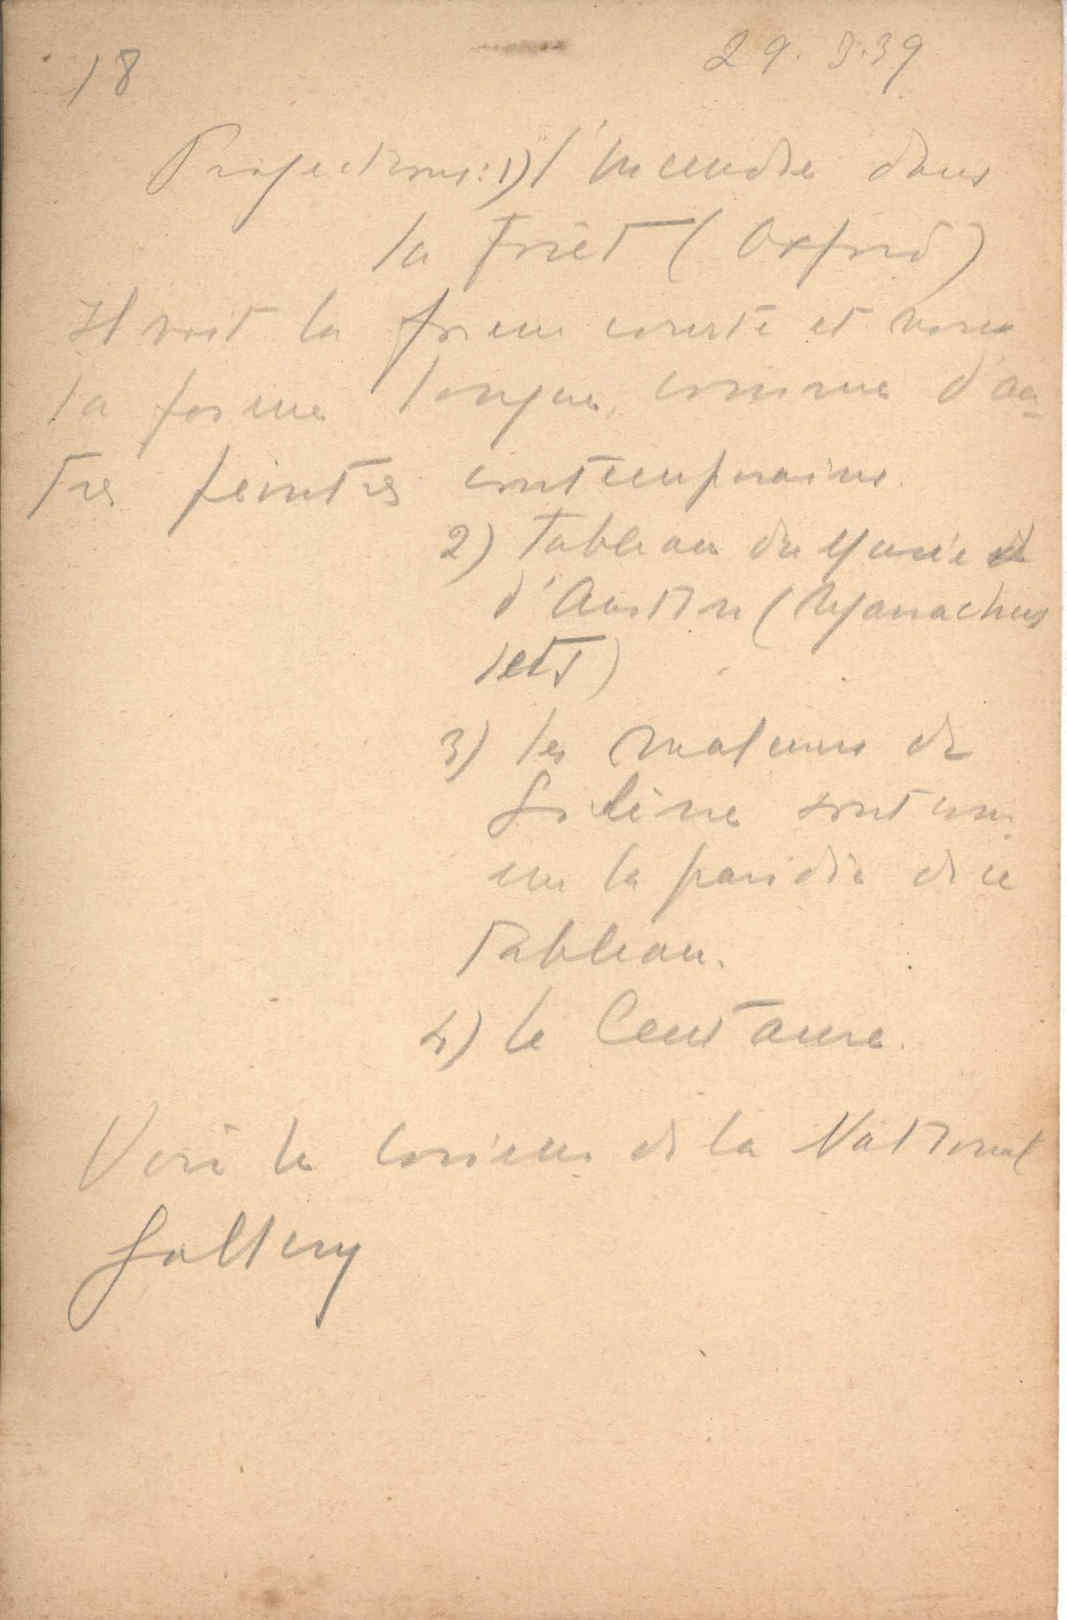 18
29.3.39
Projections: 1) l'Incendie dans
la Forêt (Oxford)
Il voit la forme courte et non
la forme longue, comme d'au-
tres peintres contemporains.
2) Tableau du Musée
d'Austin (Massachus
setts)
3) les malheurs de
Silène sont com
me la parodie de ce
Tableau.
4) le Centaure.
Voir le de la National
Gallery